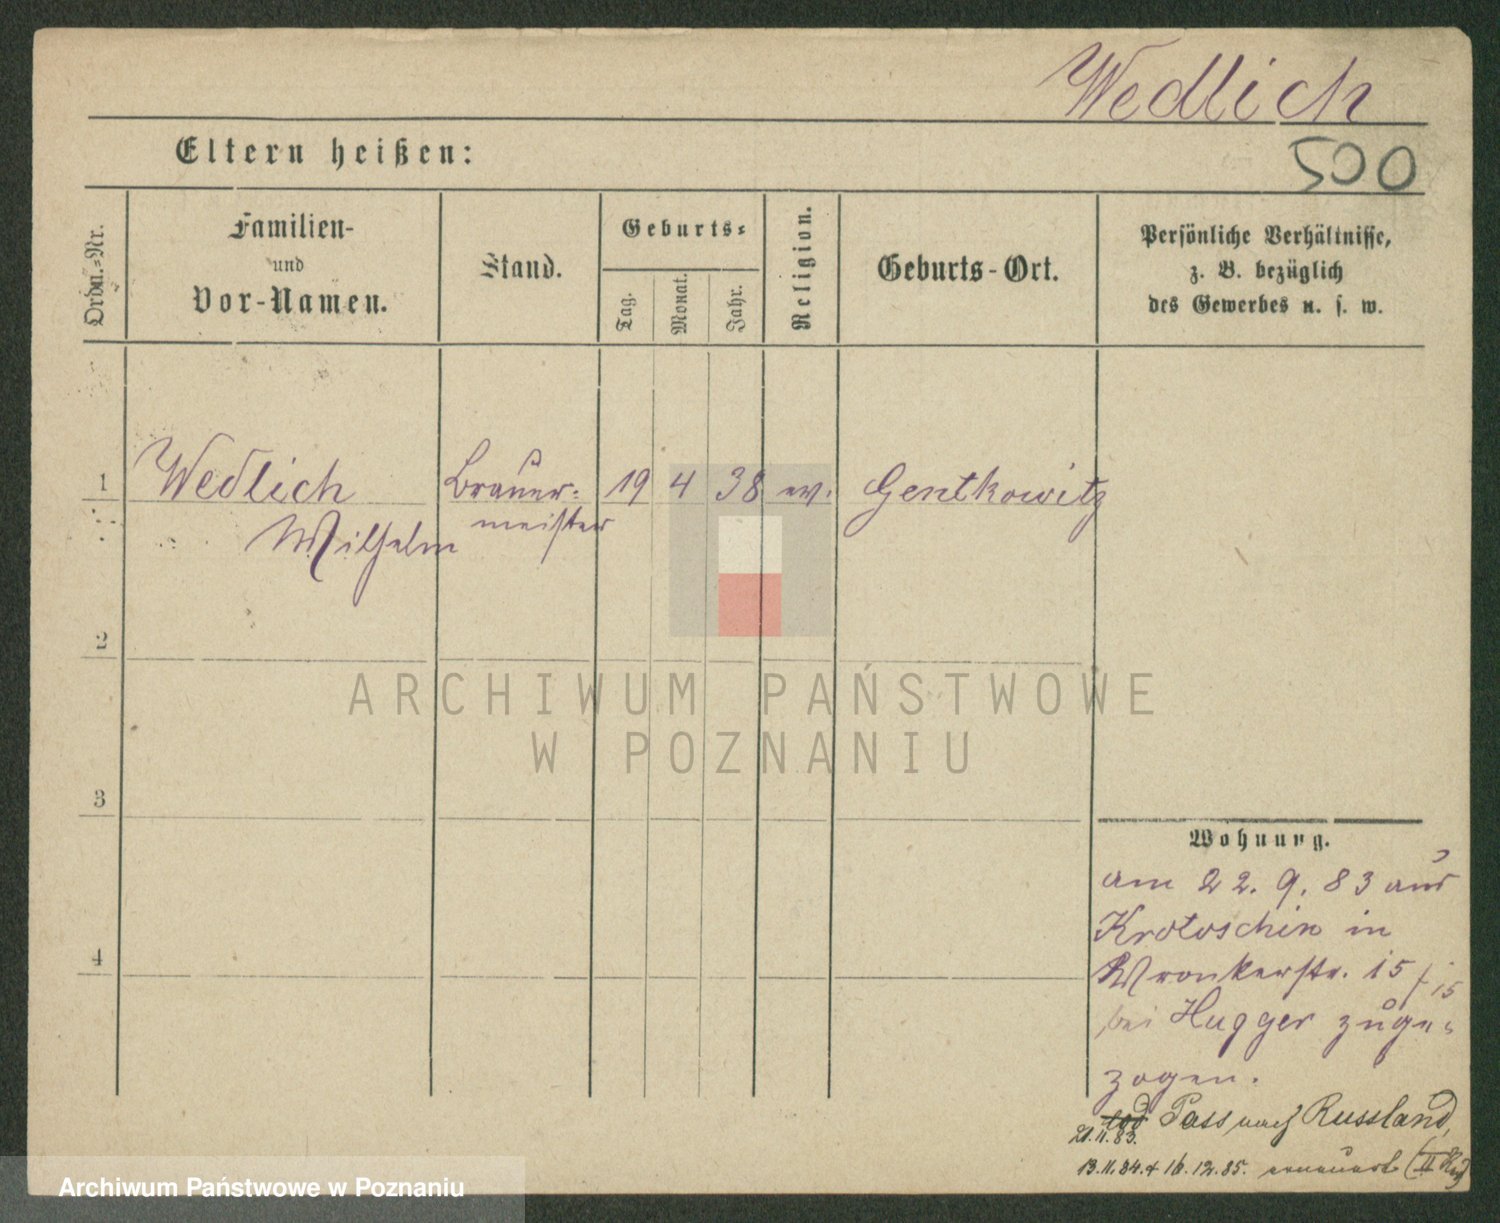 Wedlich
500
Eltern heißen:
Ordn.-Nr.
Familien-
und
Vor-Namen.
Stand.
Geburts-
Tag.
Monat.
Jahr.
Religion.
Geburts-Ort.
Persönliche Verhältnisse,
z. B. bezüglich
des Gewerbes u. s. w.
1
Wedlich
Wilhelm
Brauer-
meister
19
4
38
ev.
Gentkowitz
2
3
4
Wohnung.
am 22. 9. 83 aus
Krotoschin in
Wronkerstr. 15/15
bei Hugger zuge-
zogen.
Pass nach Russland,
21.11.83.
13.11.84. & 16.12.85. erneuert
ARCHIWUM PAŃSTWOWE
W POZNANIU
Archiwum Państwowe w Poznaniu